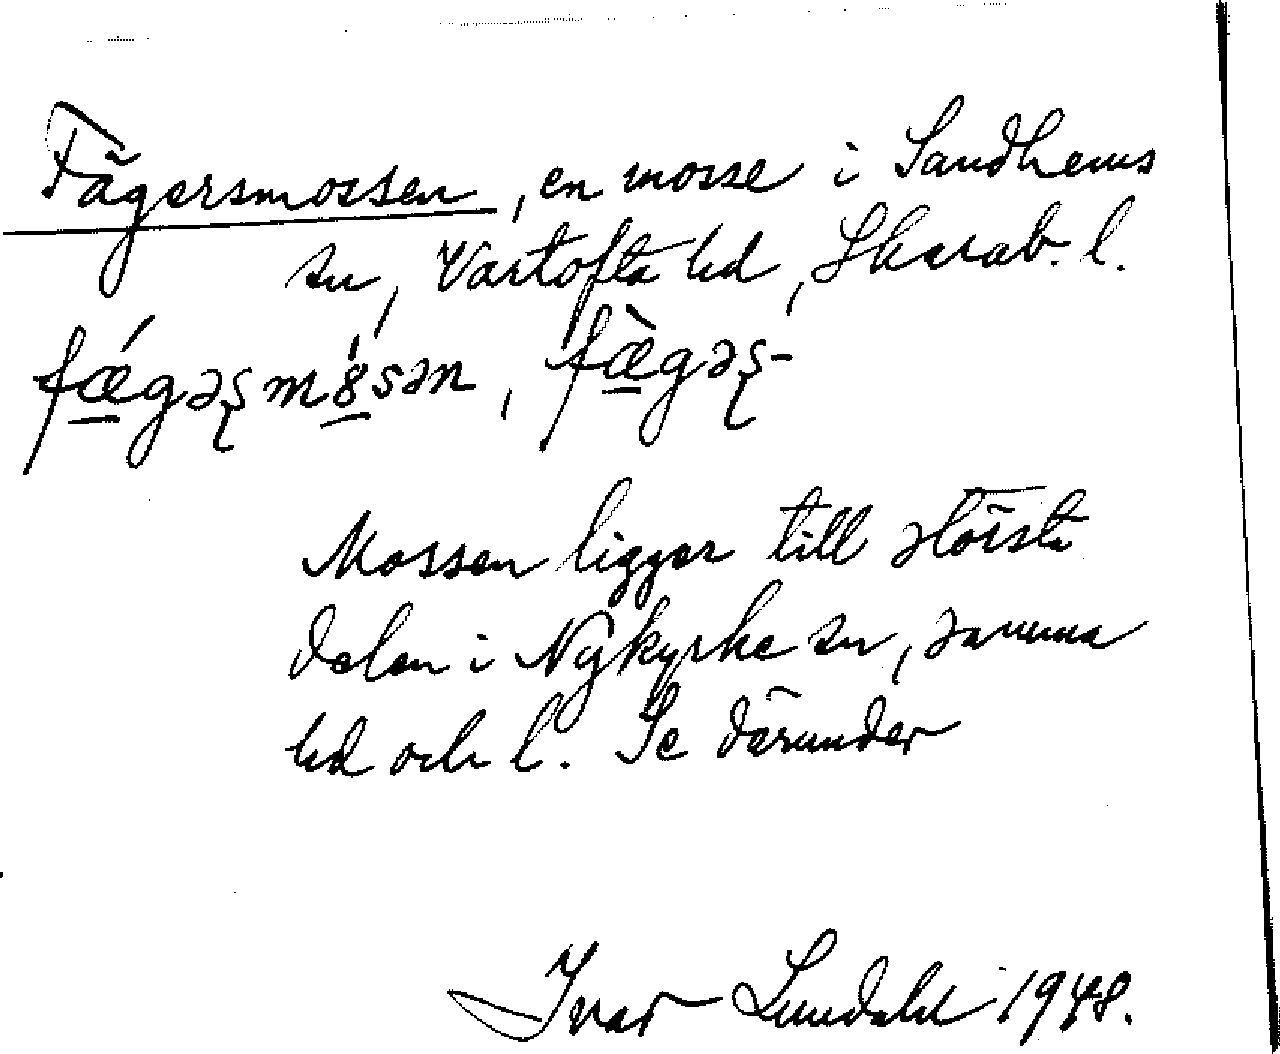 Fägersmossen, en mosse i Sandhems
sn, Vartofta hd, Skarab. l.
fǽgəʂmósən, fæ̀gəʂ-
Mossen ligger till största
delen i Nykyrke sn, samma
hd och l. Se därunder
Ivar Lundahl 1948.